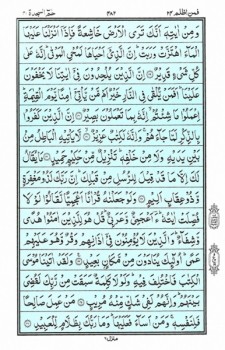 فمن اظلم ٢٤
٤٨٢
حٰمٓ السجدة ٤١
وَمِنْ اٰيٰتِهٖٓ اَنَّكَ تَرَى الْاَرْضَ خَاشِعَةً فَاِذَآ اَنْزَلْنَا عَلَيْهَا
الْمَآءَ اهْتَزَّتْ وَرَبَتْ ؕ اِنَّ الَّذِيْٓ اَحْيَاهَا لَمُحْيِ الْمَوْتٰى ؕ اِنَّهٗ عَلٰى
كُلِّ شَيْءٍ قَدِيْرٌ ۞ اِنَّ الَّذِيْنَ يُلْحِدُوْنَ فِيْٓ اٰيٰتِنَا لَا يَخْفَوْنَ
عَلَيْنَا ؕ اَفَمَنْ يُّلْقٰى فِى النَّارِ خَيْرٌ اَمْ مَّنْ يَّاْتِيْٓ اٰمِنًا يَّوْمَ الْقِيٰمَةِ ؕ
اِعْمَلُوْا مَا شِئْتُمْ ۙ اِنَّهٗ بِمَا تَعْمَلُوْنَ بَصِيْرٌ ۞ اِنَّ الَّذِيْنَ كَفَرُوْا
بِالذِّكْرِ لَمَّا جَآءَهُمْ ۚ وَاِنَّهٗ لَكِتٰبٌ عَزِيْزٌ ۞ لَّا يَاْتِيْهِ الْبَاطِلُ مِنْۢ
بَيْنِ يَدَيْهِ وَلَا مِنْ خَلْفِهٖ ؕ تَنْزِيْلٌ مِّنْ حَكِيْمٍ حَمِيْدٍ ۞ مَا يُقَالُ
لَكَ اِلَّا مَا قَدْ قِيْلَ لِلرُّسُلِ مِنْ قَبْلِكَ ؕ اِنَّ رَبَّكَ لَذُوْ مَغْفِرَةٍ
وَّذُوْ عِقَابٍ اَلِيْمٍ ۞ وَلَوْ جَعَلْنٰهُ قُرْاٰنًا اَعْجَمِيًّا لَّقَالُوْا لَوْلَا
فُصِّلَتْ اٰيٰتُهٗ ؕ ءَاَعْجَمِيٌّ وَّعَرَبِيٌّ ؕ قُلْ هُوَ لِلَّذِيْنَ اٰمَنُوْا هُدًى
وَّشِفَآءٌ ؕ وَالَّذِيْنَ لَا يُؤْمِنُوْنَ فِيْٓ اٰذَانِهِمْ وَقْرٌ وَّهُوَ عَلَيْهِمْ
عَمًى ؕ اُولٰٓئِكَ يُنَادَوْنَ مِنْ مَّكَانٍۭ بَعِيْدٍ ۞ وَلَقَدْ اٰتَيْنَا مُوْسَى
الْكِتٰبَ فَاخْتُلِفَ فِيْهِ ؕ وَلَوْلَا كَلِمَةٌ سَبَقَتْ مِنْ رَّبِّكَ لَقُضِيَ
بَيْنَهُمْ ؕ وَاِنَّهُمْ لَفِيْ شَكٍّ مِّنْهُ مُرِيْبٍ ۞ مَنْ عَمِلَ صَالِحًا
فَلِنَفْسِهٖ وَمَنْ اَسَآءَ فَعَلَيْهَا ؕ وَمَا رَبُّكَ بِظَلَّامٍ لِّلْعَبِيْدِ ۞
منزل ٦